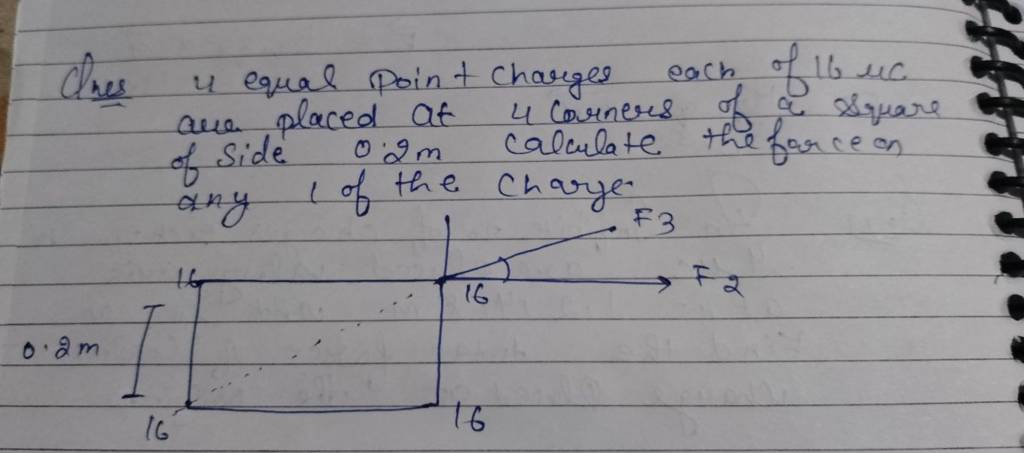 Ques 4 equal point charges each of 16 uc
are placed at 4 corners of a square
of side 0.2m calculate the force on
any 1 of the charge.
F3
16 16 F2
0.2m
16 16